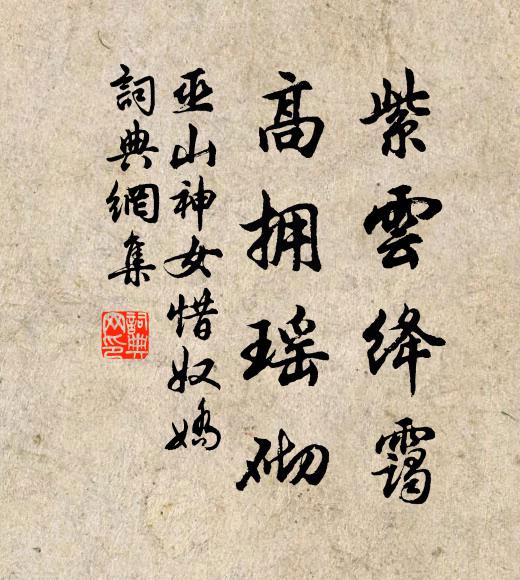 紫雲绛靄
高拥瑶砌
巫山神女惜奴嬌
詞典網集
詞典網印